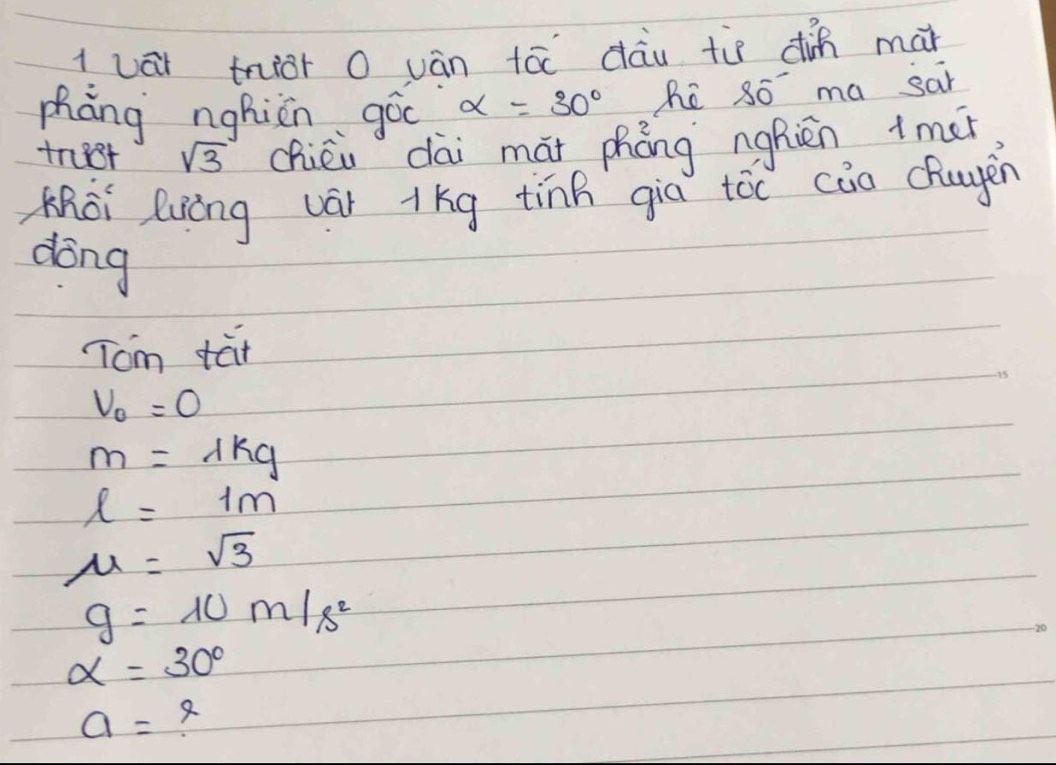 1 vật trượt 0 vận tốc đầu từ đỉnh mặt
phẳng nghiên gốc α = 30° hệ số ma sát
trượt √3 chiều dài mặt phẳng nghiên 1 mét
khối lượng vật 1kg tính gia tốc của chuyển
động
Tóm tắt
V₀ = 0
m = 1kg
l = 1m
μ = √3
g = 10 m/s²
α = 30°
a = ?
15
20